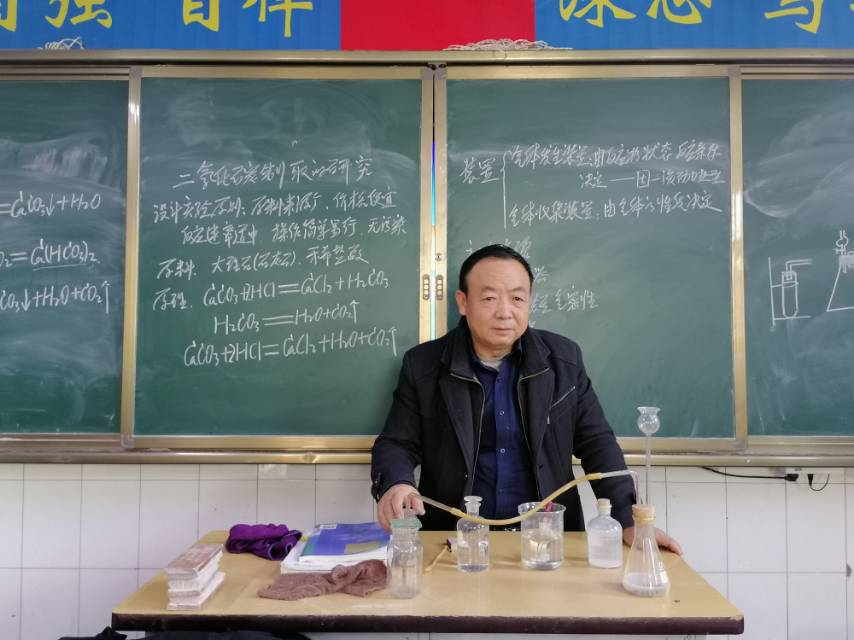 自强 自律
=CaCO₃↓+H₂O
=Ca(HCO₃)₂
CO₃↓+H₂O+CO₂↑
二氧化碳制取的研究
设计实验原则：原料来源广，价格便宜
反应速率适中 操作简单易行，无污染
原料：大理石(石灰石)、稀盐酸
原理：CaCO₃+2HCl=CaCl₂+H₂CO₃
H₂CO₃=H₂O+CO₂↑
CaCO₃+2HCl=CaCl₂+H₂O+CO₂↑
装置
气体发生装置：由反应物状态 反应条件
决定——固
气体收集装置：由气体的性质决定
气密性